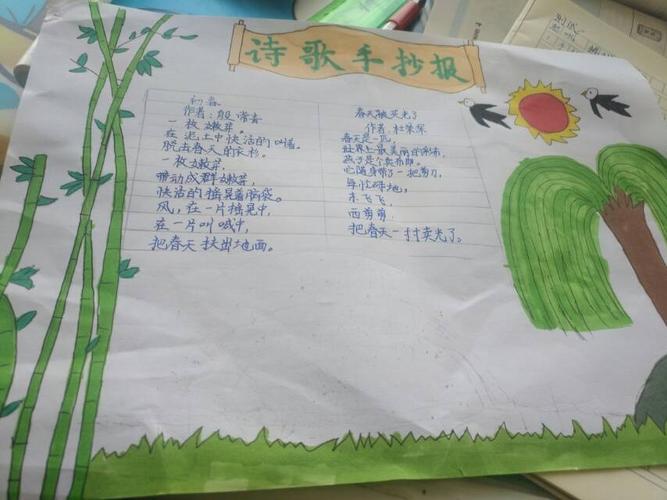 诗歌手抄报
初春
作者：殷常青
一枚嫩芽。
在泥土中快活的叫嚷。
脱去春天的衣衫。
一枚嫩芽，
带动成群嫩芽，
快活的摇晃着脑袋。
风，在一片摇晃中，
在一片叫喊中，
把春天扶出地面。
春天被卖光了
作者：杜荣琛
春天是一匹，
世界上最美丽的彩布，
燕子是个卖布郎。
它随身带了一把剪刀，
每忙碎地，
东飞飞，
西剪剪，
把春天一寸寸卖光了。